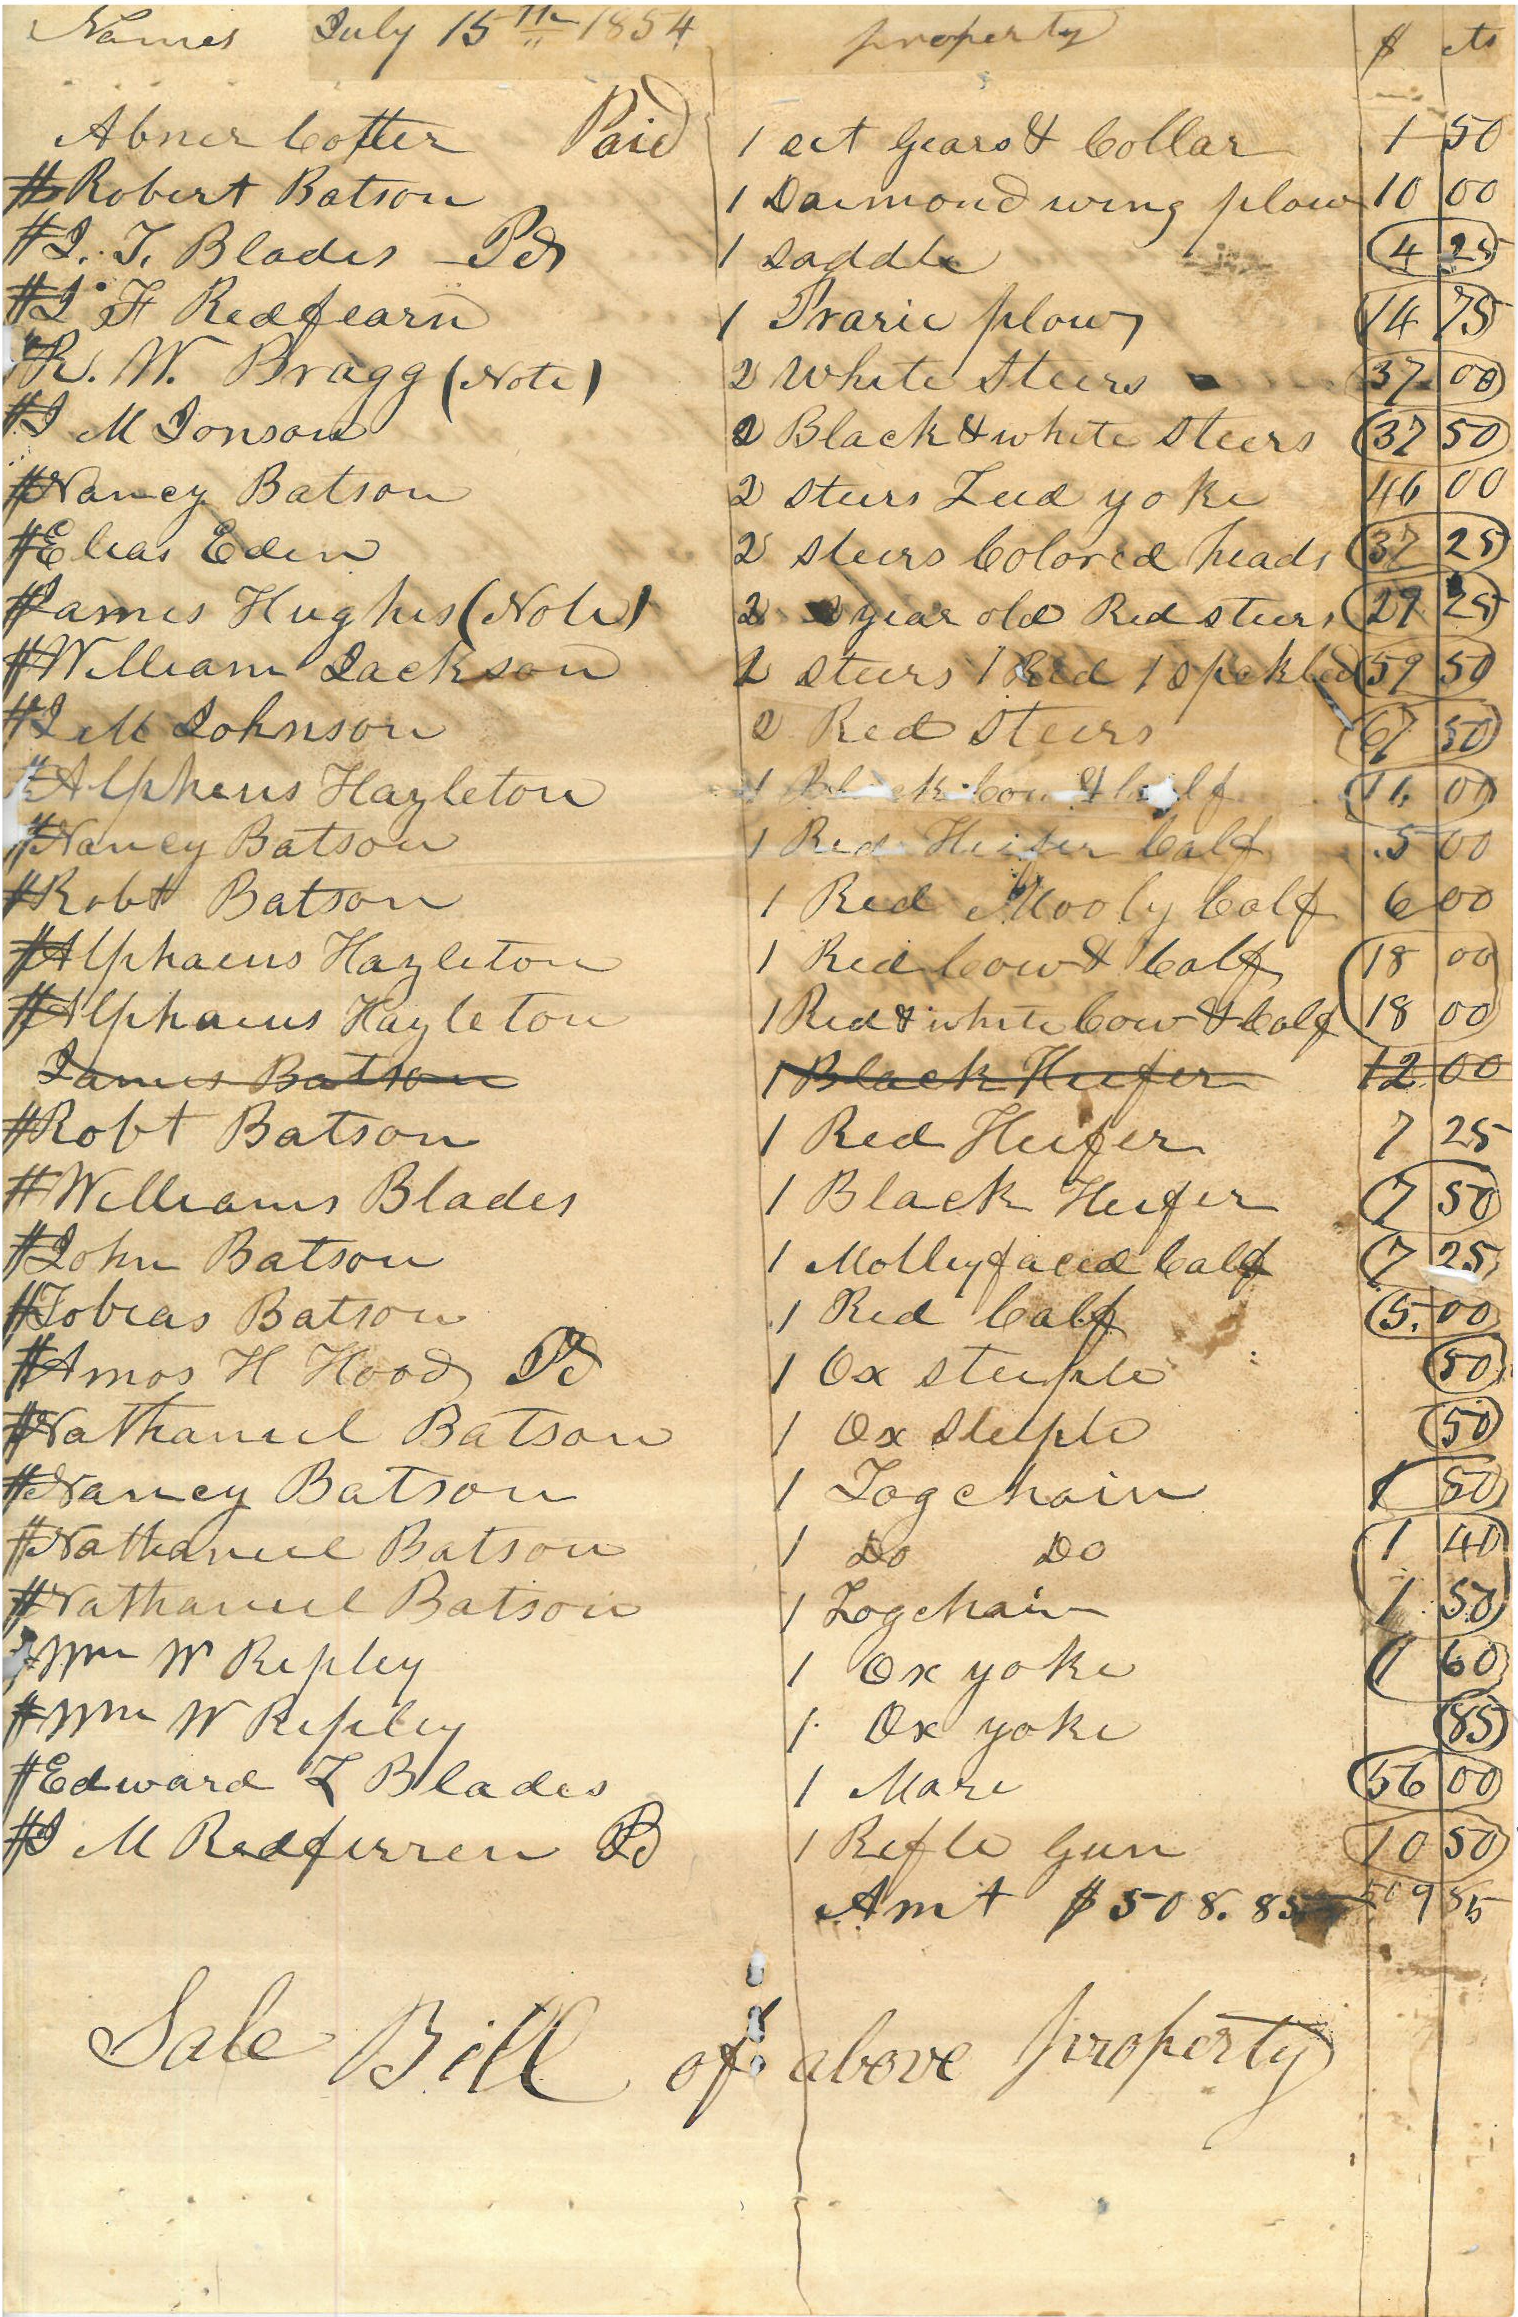 Names July 15th 1854 property $ cts
Abner Cotter Paid 1 set Gears & Collar 1 50
# Robert Batson 1 Daimond wing plow 10 00
# J. T. Blades Pd 1 saddle 4 25
# J F Redfearn 1 Prarie plow 14 75
# R. W. Bragg (Note) 2 White Steers 37 00
# J M Jonson 2 Black & white steers 37 50
# Nancy Batson 2 steers Lead yoke 46 00
# Elias Eden 2 steers Colored heads 37 25
# James Hughes (Note) 2 year old Red steers 29 25
# William Jackson 2 steers 1 Red 1 spekled 59 50
# J M Johnson 2 Red Steers 67 50
# Alpheus Hazleton 1 Black Cow & Calf 11 00
# Nancy Batson 1 Red Heifer Calf 5 00
# Robt Batson 1 Red Mooly Calf 6 00
# Alphaeus Hazleton 1 Red Cow & Calf 18 00
# Alphaeus Hazleton 1 Red & white Cow & Calf 18 00
James Batson 1 Black Heifer 12 00
# Robt Batson 1 Red Heifer 7 25
# Williams Blades 1 Black Heifer 7 50
# John Batson 1 Molleyfaced Calf 7 25
# Tobias Batson 1 Red Calf 5. 00
# Amos H Hood Pd 1 Ox steiple 50
# Nathaniel Batson 1 Ox steiple 50
# Nancy Batson 1 Logchain 1 50
# Nathaniel Batson 1 Do Do 1 40
# Nathaniel Batson 1 Logchain 1 50
# Wm W Repley 1 Ox yoke 1 60
# Wm W Repley 1 Ox yoke 85
# Edward L Blades 1 Mare 56 00
# J M Redferren Pd 1 Refle Gun 10 50
Amt $508.85 509 55
Sale Bill of above property